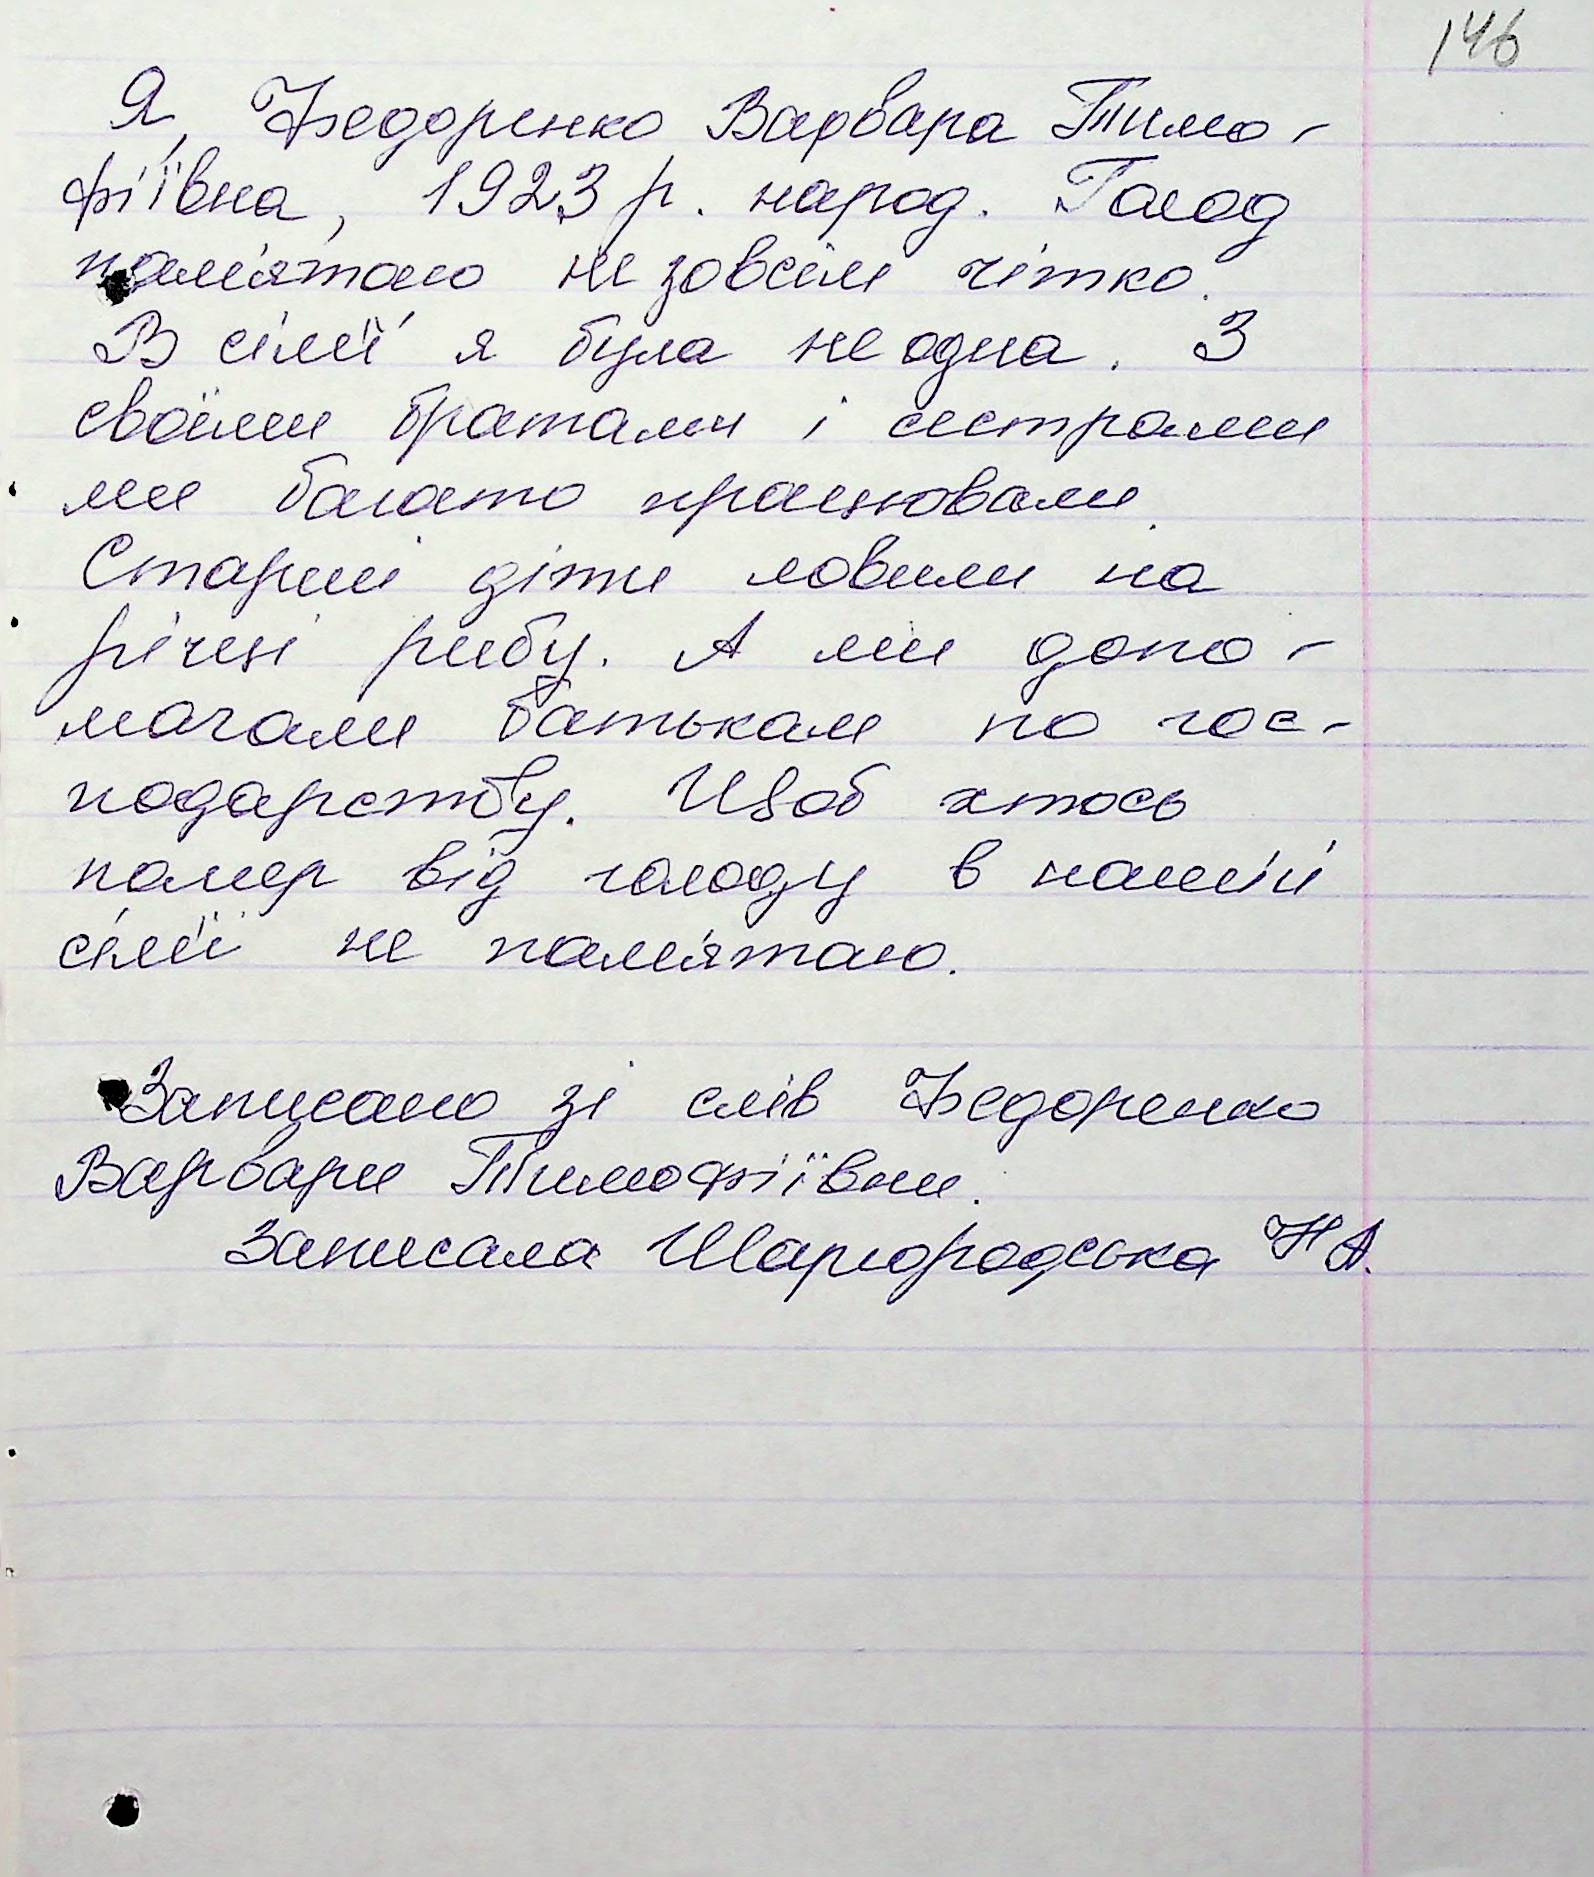 146
Я, Федоренко Варвара Тимо-
фіївна, 1923 р. народ. Голод
пам'ятаю не зовсім чітко.
В сім'ї я була не одна. З
своїми братами і сестрами
ми багато працювали.
Старші діти ловили на
річці рибу. А ми допо-
магали батькам по гос-
подарству. Щоб хтось
помер від голоду в нашій
сім'ї не пам'ятаю.
Записано зі слів Федоренко
Варвари Тимофіївни.
Записала Шаргородська Н А.